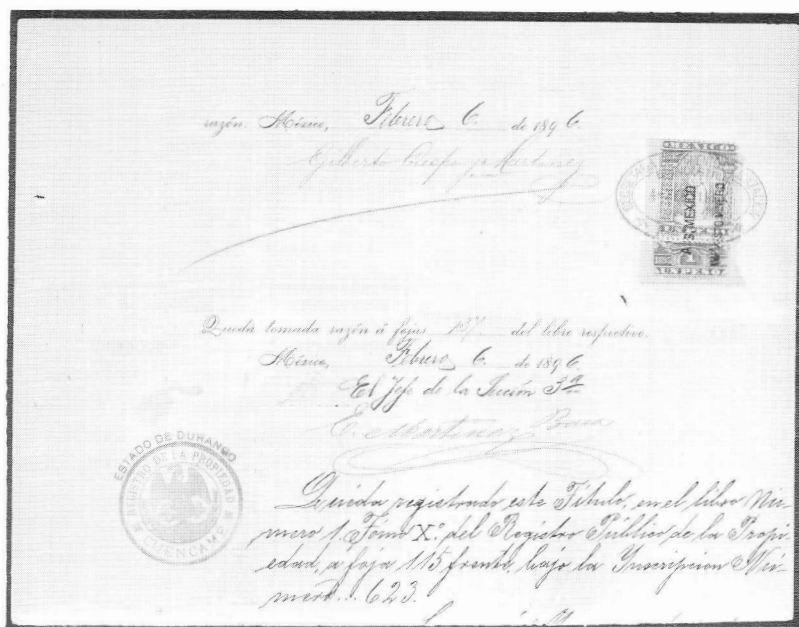 razón. México, Febrero 6. de 1896.
Gilberto Crespo y Martínez
MEXICO
A. S. MEXICO
UN PESO
Queda tomada razón á fojas 197 del libro respectivo.
México, Febrero 6. de 1896.
El Jefe de la Sección 3ª
E. Martínez Baca
ESTADO DE DURANGO
REGISTRO DE LA PROPIEDAD
CUENCAMÉ
Queda registrado este Título, en el libro Nú-
mero 1, Tomo X.º del Registro Público de la Propi-
edad, á foja 115 frente, bajo la Inscripcion Nú-
mero... 623.